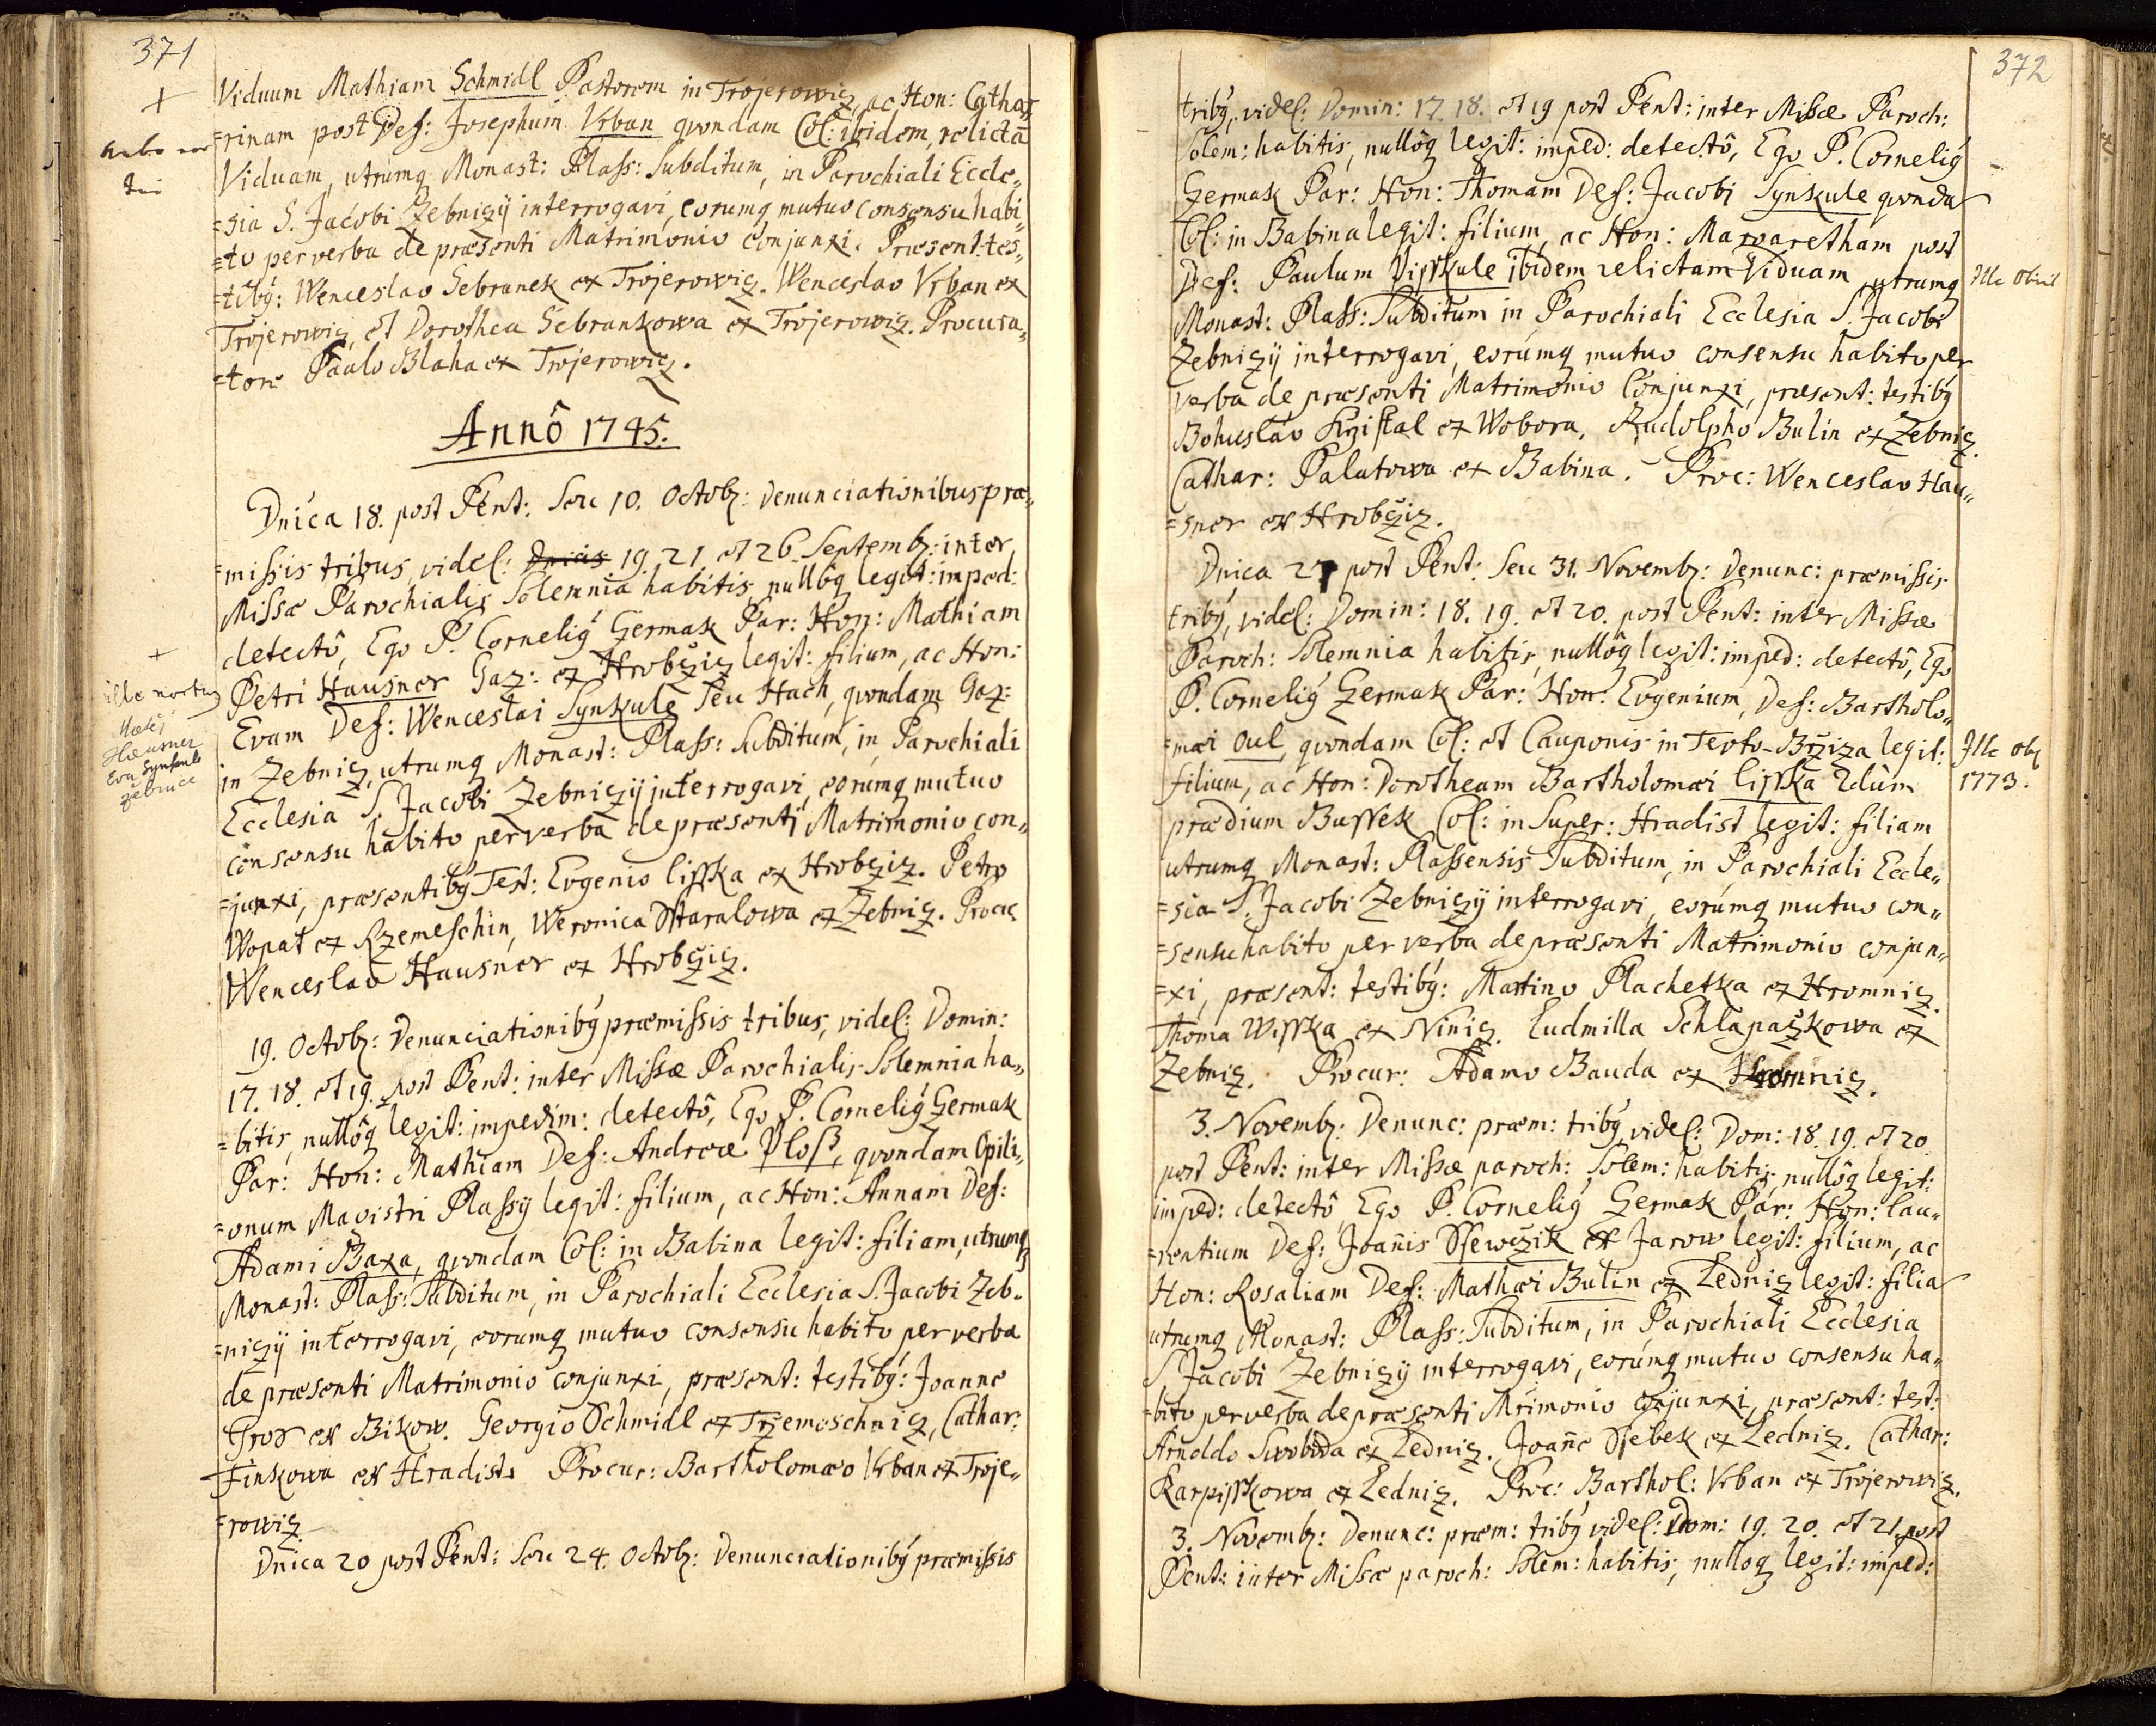 371
Viduum Mathiam Schmidl Pastorem in Trojerowiz, ac Hon: Catha-
=rinam post Def: Josephum Vrban qvondam Col: ibidem, relictā
Viduam, utrumq Monast: Plass: Subditum, in Parochiali Eccle,,
=sia S. Jacobi Zebnizÿ interrogavi, eorumq mutuo consensu habi,,
=to per verba de præsenti Matrimonio conjunxi. Præsent: tes,,
=tibꝰ: Wenceslao Sebranek ex Trojerowiz. Wenceslao Vrban ex
Trojerowiz, et Dorothea Sebrankowa ex Trojerowiz. Procura,,
=tore Paulo Blaha ex Trojerowiz.
Annô 1745.
Dnica 18. post Pent: Seu 10. Octobr: Denunciationibus præ,,
=missis tribus, videl: Dnicis 19. 21. et 26. Septembr: inter
Missæ Parochialis Solemnia habitis, nullôq legit: imped:
detectô, Ego P. Corneliꝰ Czermak Par: Hon: Mathiam
Petri Hausner Gaz: ex Hrobčiz legit: filium, ac Hon:
Evam Def: Wenceslai Synkule Seu Hach, qvondam Gaz:
in Zebniz, utrumq Monast: Plass: Subditum, in Parochiali
Ecclesia S. Jacobi Zebnizÿ interrogavi, eorumq mutuo
consensu habito per verba de præsenti Matrimonio con,,
=junxi, præsentibꝰ Test: Evgenio Lisska ex Hrobčiz. Petro
Wopat ex Rzemeschin, Weronica Sstaralowa ex Zebniz. Procur
Wenceslao Hausner ex Hrobčiz.
+
ille mortuꝰ
Matěj
Hausner
Eva Synkule
Žebnice
19. Octobr: Denunciationibꝰ præmissis tribus, videl: Domin:
17. 18. et 19. post Pent: inter Missæ Parochialis Solemnia ha,,
=bitis, nullôq legit: impedim: detectô, Ego P. Corneliꝰ Czermak
Par: Hon: Mathiam Def: Andreæ Ploß, qvondam Opili,,
=onum Magistri Plassÿ legit: filium, ac Hon: Annam Def:
Adami Baxa, qvondam Col: in Babina legit: filiam, utrumq
Monast: Plass: Subditum, in Parochiali Ecclesia S. Jacobi Zeb,,
=nizÿ interrogavi, eorumq mutuo consensu habito, per verba
de præsenti Matrimonio conjunxi, præsent: testibꝰ: Joanne
ex Bikow. Georgio Schmidl ex Trzemoschniz, Cathar:
Finkowa ex Hradist. Procur: Bartholomæo Vrban ex Troje,,
=rowiz.
Dnica 20 post Pent: Seu 24. Octobr: Denunciationibꝰ præmissis
372
tribꝰ, videl: Domin: 17. 18. et 19 post Pent: inter Missæ Paroch:
Solem: habitis, nullôq legit: imped: detectô, Ego P. Corneliꝰ
Czermak Par: Hon: Thomam Def: Jacobi Synkule qvonda
Col: in Babina legit: filium, ac Hon: Margaretham post
Def: Paulum Visskule ibidem relictam Viduam, utrumq
Monast: Plass: Subditum in Parochiali Ecclesia S. Jacobi
Zebnizÿ interrogavi, eorumq mutuo consensu habito per
verba de præsenti Matrimonio Conjunxi, præsent: testibꝰ
Bohuslao ex Wobora, Rudolpho Bulin ex Zebniz.
Cathar: Palatowa ex Babina. Proc: Wenceslao Hau,,
=sner ex Hrobčiz.
Ille obiit
Dnica 21 post Pent: Seu 31. Novembr: Denunc: præmissis
tribꝰ, videl: Domin: 18. 19. et 20. post Pent: inter Missæ
Paroch: Solemnia habitis, nullôq legit: imped: detectô, Ego
P. Corneliꝰ Czermak Par: Hon: Evgenium, Def: Bartholo,,
=mæi Oul, qvondam Col: et Cauponis in Teoto-Brziza legit:
filium, ac Hon: Dorotheam Bartholomæi Lisska
prædium Bussek Col: in Super: Hradist legit: filiam
utrumq Monast: Plassensis Subditum, in Parochiali Eccle,,
=sia S. Jacobi Zebnizÿ interrogavi, eorumq mutuo con,,
=sensu habito per verba de præsenti Matrimonio conjun,,
=xi, præsent: testibꝰ: Martino Plachetka ex Hromniz.
Thoma Wisska ex Niniz. Ludmilla Schlapačkowa ex
Zebniz. Procur: Adamo Bauda ex Hromniz.
Ille ob
1773.
3. Novembr: Denunc: præm: tribꝰ, videl: Dom: 18. 19. et 20
post Pent: inter Missæ paroch: Solem: habitis, nullôq legit:
imped: detectô, Ego P. Corneliꝰ Czermak Par: Hon: Lau,,
=rentium Def: Joañis Ssewczik ex Jarow legit: filium, ac
Hon: Rosaliam Def: Mathæi Bulin ex Ledniz legit: filia
utrumq Monast: Plass: Subditum, in Parochiali Ecclesia
S. Jacobi Zebnizÿ interrogavi, eorumq mutuo consensu ha,,
=bito per verba de præsenti Mrimonio conjunxi, præsent: test:
Arnoldo Swoboda ex Ledniz. Joañe Ssebek ex Ledniz. Cathar:
Karpisskowa ex Ledniz. Proc: Barthol: Vrban ex Trojerowiz.
3. Novembr: Denunc: præm: tribꝰ videl: Dom: 19. 20. et 21. post
Pent: inter Missæ paroch: Solem: habitis, nulloq legit: imped: